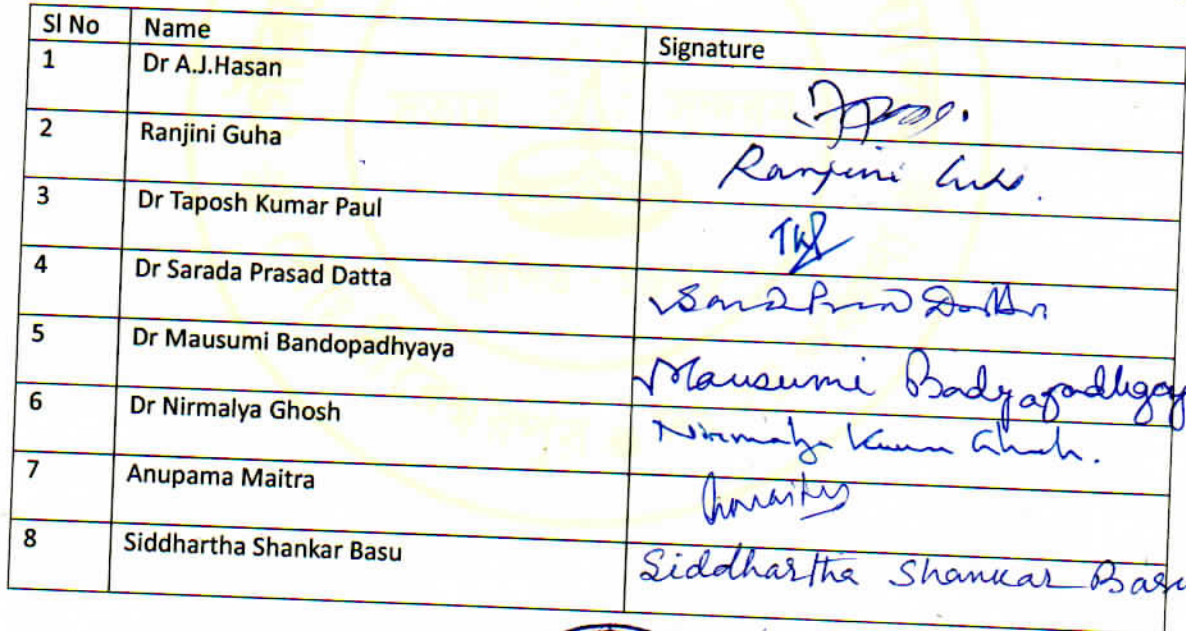 Sl No Name Signature
1 Dr A.J.Hasan
2 Ranjini Guha Ranjini Guha.
3 Dr Taposh Kumar Paul TKP
4 Dr Sarada Prasad Datta
5 Dr Mausumi Bandopadhyaya Mausumi
6 Dr Nirmalya Ghosh Nirmalya Kumar Ghosh.
7 Anupama Maitra
8 Siddhartha Shankar Basu Siddhartha Shankar Basu